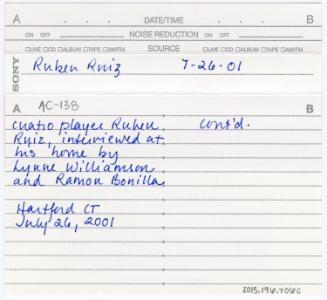 A DATE/TIME B
ON OFF NOISE REDUCTION ON OFF
□LIVE □CD □ALBUM □TAPE □AM/FM SOURCE □LIVE □CD □ALBUM □TAPE □AM/FM
SONY
Ruben Ruiz 7-26-01
A AC-138 B
cuatro player Ruben cont'd.
Ruiz, interviewed at
his home by
Lynne Williamson
and Ramon Bonilla
Hartford CT
July 26, 2001
2015.196.706c